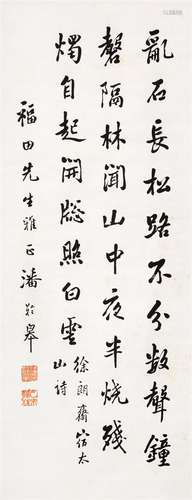 亂石長松路不分數聲鐘
磬隔林聞山中夜半燒殘
燭自起開牕照白雲
徐朗齋宿太
山詩
福田先生雅正潘齡皋